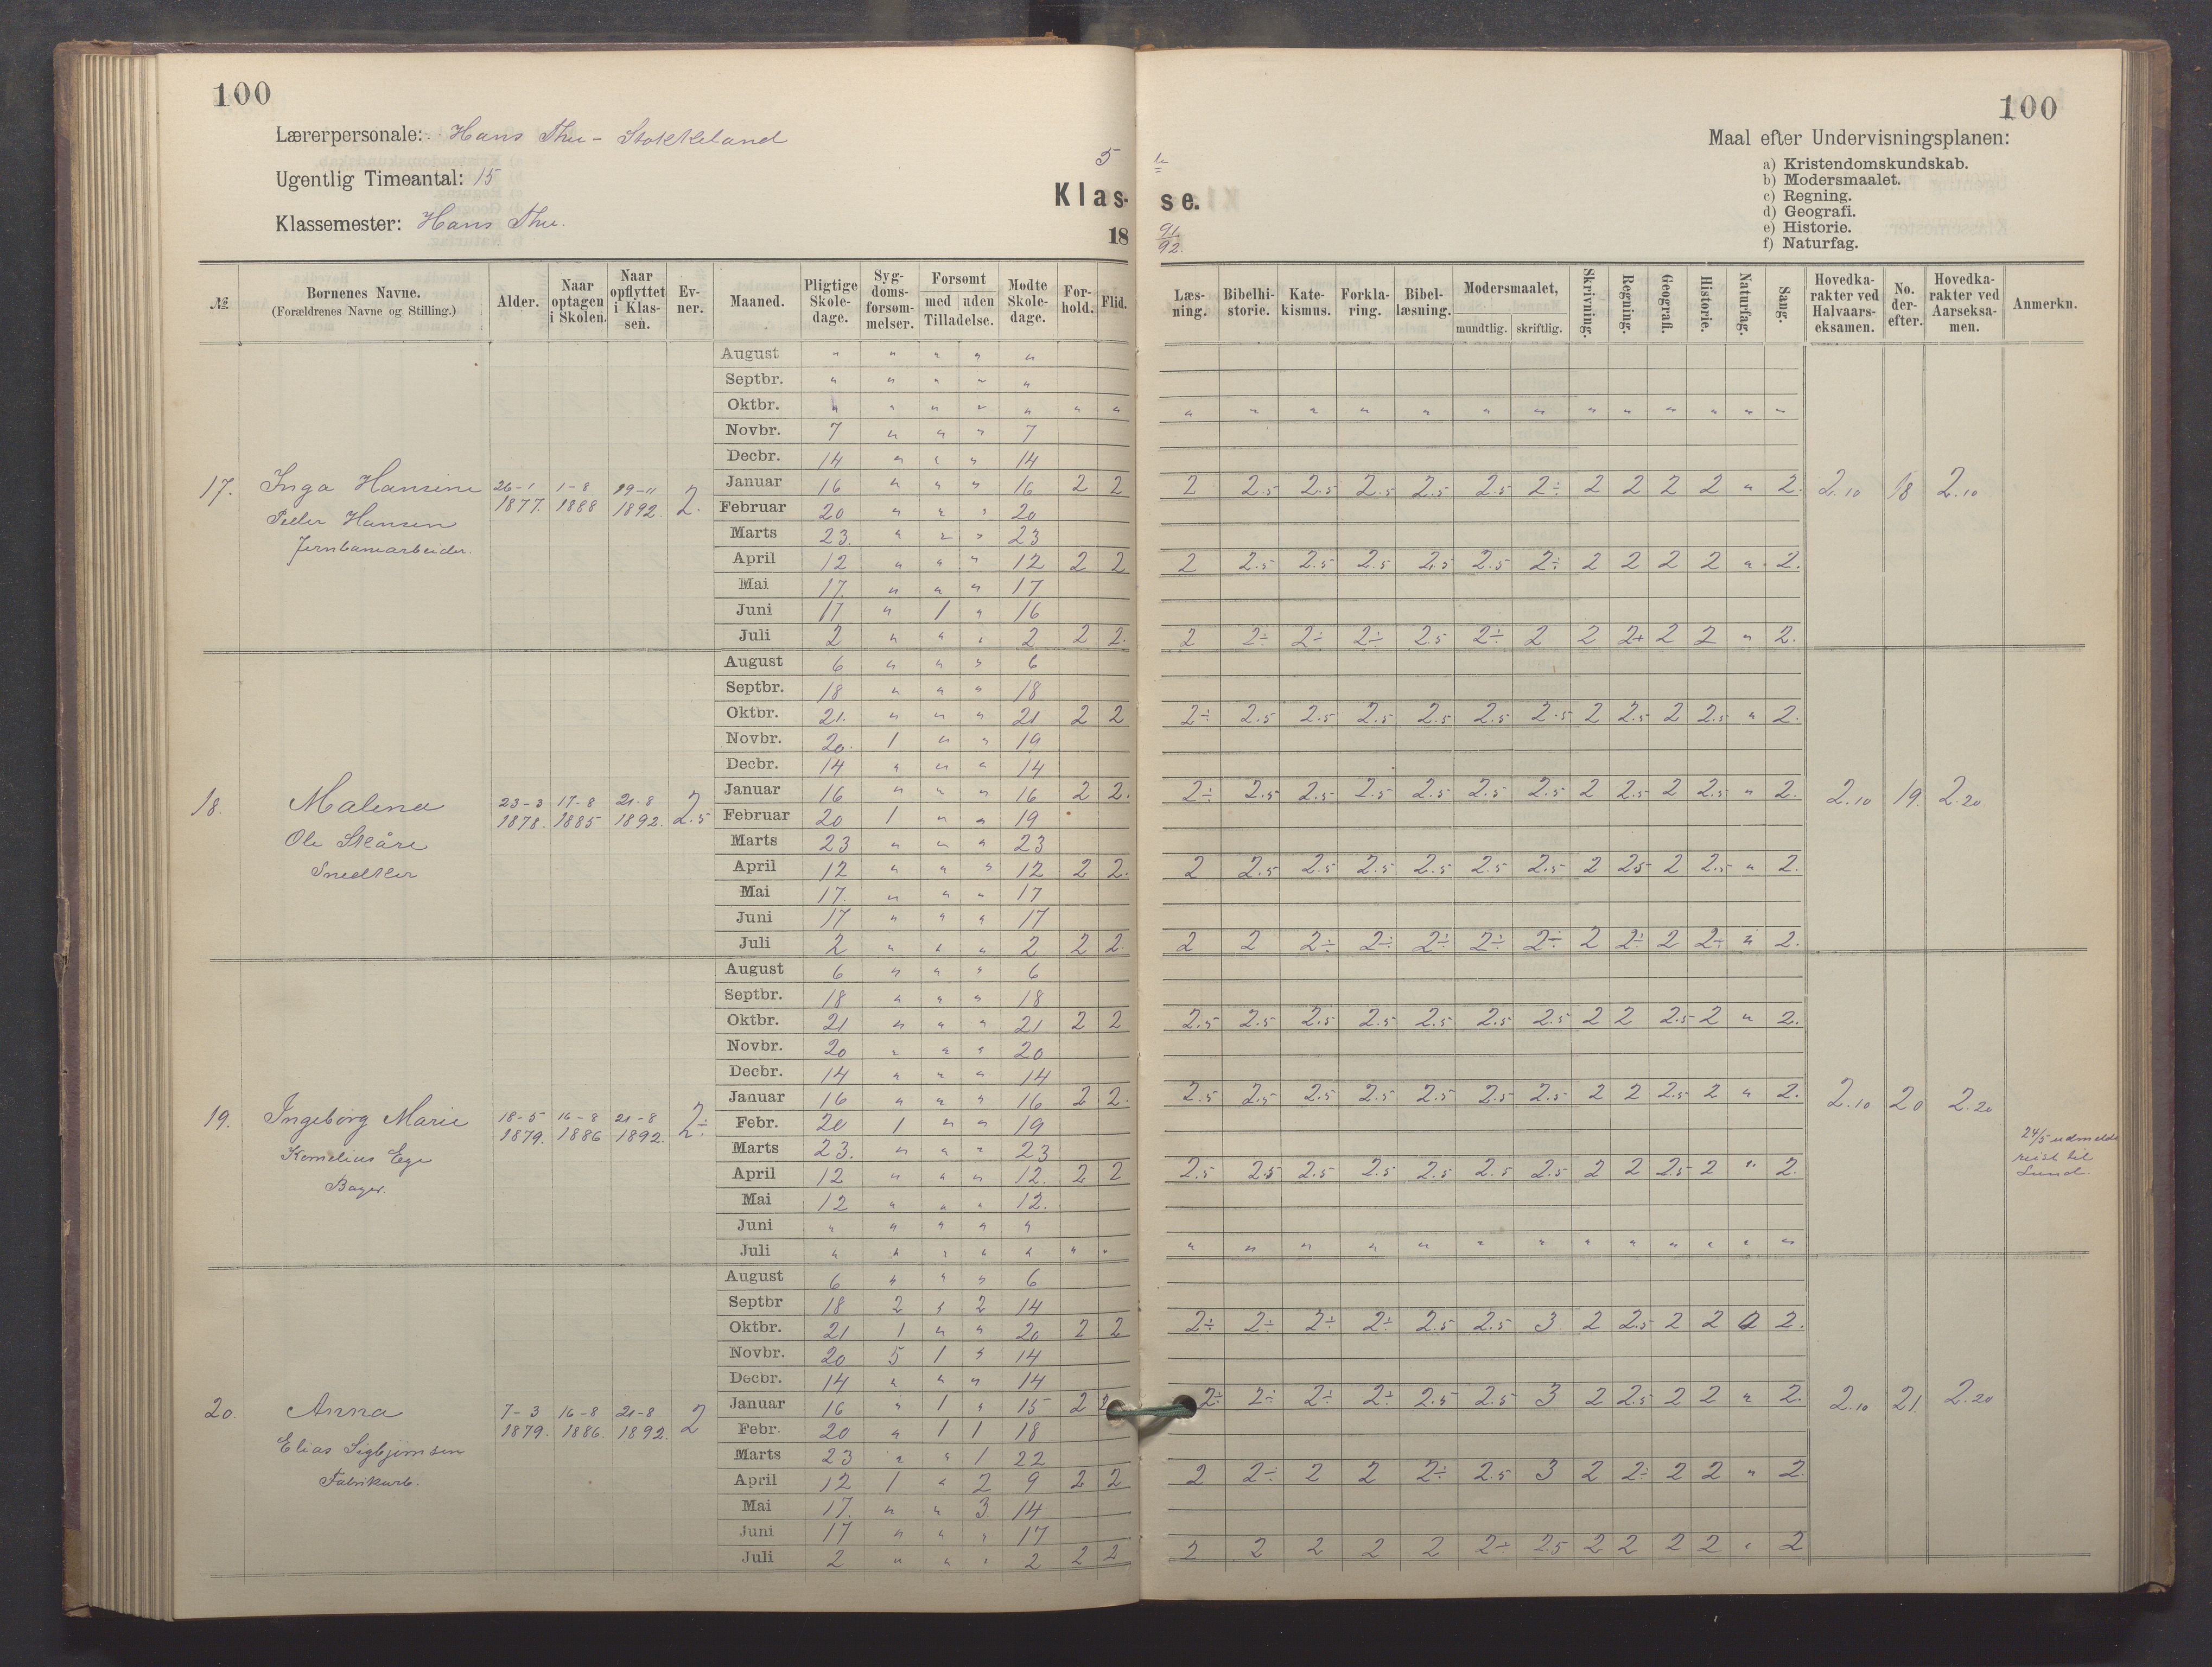 100
Lærerpersonale: Hans Thu - Stokkeland
Ugentlig Timeantal: 15
Klassemester: Hans Thu.
5
Klas-
18
te
se.
91/92.
100
Maal efter Undervisningsplanen:
a) Kristendomskundskab.
b) Modersmaalet.
c) Regning.
d) Geografi.
e) Historie.
f) Naturfag.
№ Børnenes Navne. (Forældrenes Navne og Stilling.) Alder. Naar optagen i Skolen. Naar opflyttet i Klassen. Evner. Maaned. Pligtige Skoledage. Sygdomsforsømmelser. Forsømt med uden Tilladelse. Mødte Skoledage. Forhold. Flid. Læsning. Bibelhistorie. Katekismus. Forklaring. Bibellæsning. Modersmaalet, mundtlig. skriftlig. Skrivning. Regning. Geografi. Historie. Naturfag. Sang. Hovedkarakter ved Halvaarseksamen. No. derefter. Hovedkarakter ved Aarseksamen. Anmerkn.
17. Inga Hansine
Peder Hansen
Jernbanearbeider.
26-1 1877. 1-8 1888 19-11 1892. 2.
August " " " " "
Septbr. " " " " "
Oktbr. " " " " " " " " " " " " " " " " " " " "
Novbr. 7 " " " 7
Decbr. 14 " " " 14
Januar 16 " " " 16 2 2 2 2.5 2.5 2.5 2.5 2.5 2÷ 2 2 2 2 " 2. 2.10 18 2.10
Februar 20 " " " 20
Marts 23. " " " 23
April 12 " " " 12 2 2 2 2.5 2.5 2.5 2.5 2.5 2÷ 2 2 2 2 " 2.
Mai 17. " " " 17
Juni 17 " 1 " 16
Juli 2 " " " 2 2 2. 2 2÷ 2÷ 2÷ 2.5 2÷ 2 2 2+ 2 2 " 2.
18. Malena
Ole Skåre
Snedker
23-3 1878. 17-8 1885 21-8 1892. 2 2.5
August 6 " " " 6
Septbr. 18 " " " 18
Oktbr. 21. " " " 21 2 2 2÷ 2.5 2.5 2.5 2.5 2.5 2.5 2 2.5 2 2.5 " 2.
Novbr. 20. 1 " " 19
Decbr. 14 " " " 14
Januar 16 " " " 16 2 2. 2÷ 2.5 2.5 2.5 2.5 2.5 2.5 2 2.5 2 2.5 " 2. 2.10 19. 2.20
Februar 20 1 " " 19
Marts 23 " " " 23
April 12 " " " 12 2 2. 2 2.5 2.5 2.5 2.5 2.5 2.5 2 25 2 2.5 " 2.
Mai 17. " " " 17
Juni 17 " " " 17
Juli 2 " " " 2 2 2. 2 2 2÷ 2÷ 2÷ 2÷ 2÷ 2 2÷ 2 2÷ " 2.
19. Ingeborg Marie
Kornelius Ege
Bager.
18-5 1879. 16-8 1886 21-8 1892. 2÷
August 6 " " " 6
Septbr. 18 " " " 18
Oktbr. 21 " " " 21 2 2 2.5 2.5 2.5 2.5 2.5 2.5 2.5 2 2 2.5 2 " 2.
Novbr. 20 " " " 20
Decbr. 14 " " " 14
Januar 16 " " " 16 2 2. 2.5 2.5 2.5 2.5 2.5 2.5 2.5 2 2 2.5 2 " 2. 2.10 20 2.20
Febr. 20 1 " " 19
Marts 23. " " " 23
April 12 " " " 12. 2 2 2.5 2.5 2.5 2.5 2.5 2.5 2.5 2 2 2.5 2 " 2.
Mai 12 " " " 12.
Juni " " " " "
Juli " " " " " " " " " " " " " " " " " " " "
24/5 udmeldt
reist til
Lund.
20. Anna
Elias Sigbjørnsen
Fabrikarb.
7-3 1879. 16-8 1886. 21-8 1892. 2
August 6 " " " 6
Septbr 18 2 " 2 14
Oktbr. 21 1 " " 20 2 2 2÷ 2÷ 2÷ 2÷ 2.5 2.5 3 2 2.5 2 2 2 2.
Novbr. 20 5 1 " 14
Decbr. 14 " " " 14
Januar 16 " 1 " 15 2 2 2÷ 2÷ 2÷ 2÷ 2.5 2.5 3 2 2.5 2 2 " 2. 2.10 21. 2.20
Febr. 20 " 1 1 18
Marts 23 " " 1 22
April 12 1 " 2 9 2 2 2 2÷ 2 2 2÷ 2.5 3 2 2÷ 2 2 " 2.
Mai 17. " " 3. 14
Juni 17 " " " 17
Juli 2 " " " 2 2 2 2 2 2 2 2 2÷ 2.5 2 2 2 2 " 2